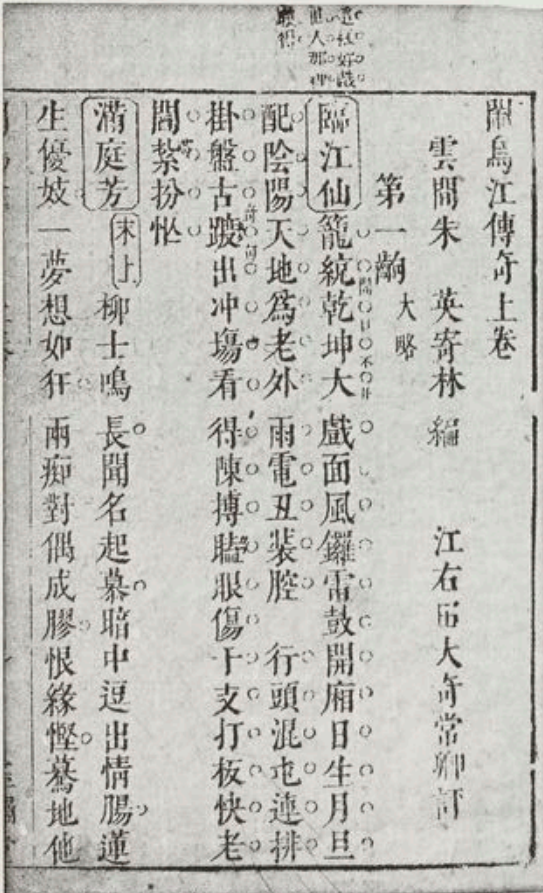 好戲
人那
鬧烏江傳奇上卷
雲間朱 英寄林 編 江右 大奇常卿訂
第一齣 大略
臨江仙 籠統乾坤大戲面風鑼雷鼓開廂日生月旦
開口不凡
配陰陽天地爲老外雨電丑裝腔 行頭混屯連排
掛盤古踱出冲塲看得陳摶瞌眼傷干支打板快老
奇奇
閻紮扮忙
滿庭芳 末上 柳士鳴長聞名起慕暗中逗出情腸蓮
生優妓一夢想如狂 兩痴對偶成膠恨緣慳驀地他